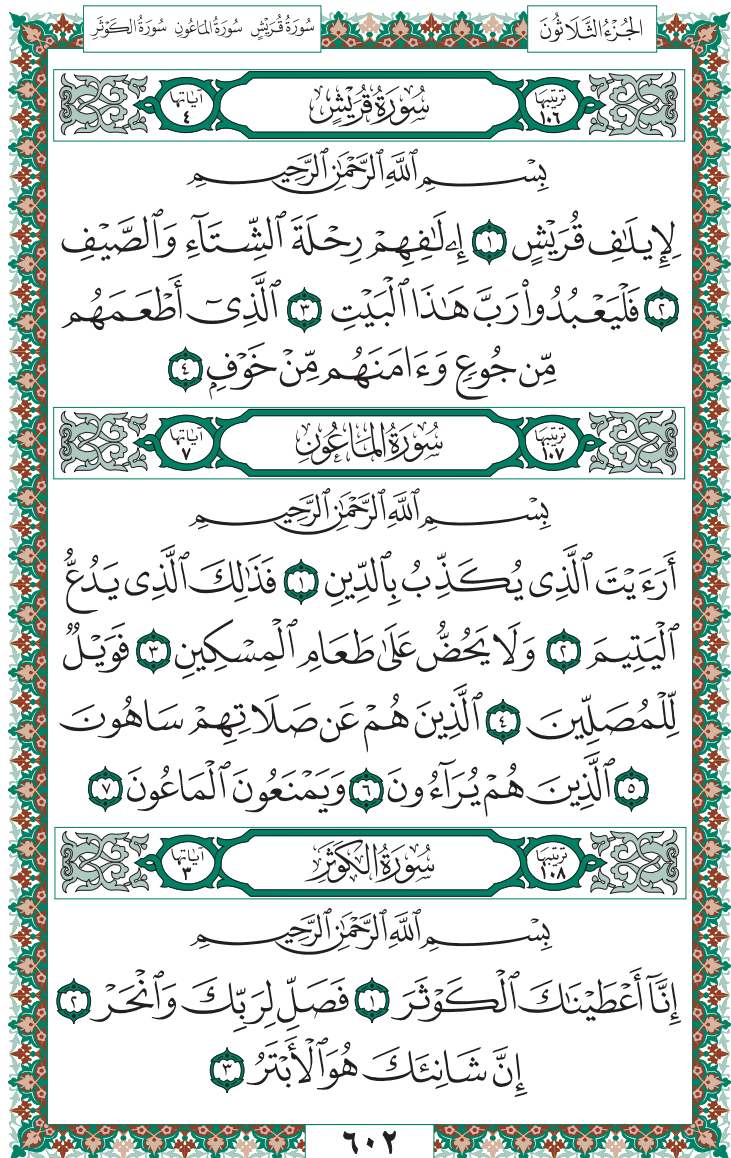 الجُزْءُ الثَّلَاثُونَ سُورَةُ قُرَيْشٍ سُورَةُ المَاعُونِ سُورَةُ الكَوْثَرِ
ترتيبها ١٠٦ سُورَةُ قُرَيْشٍ اياتها ٤
بِسْمِ ٱللَّهِ ٱلرَّحْمَٰنِ ٱلرَّحِيمِ
لِإِيلَٰفِ قُرَيْشٍ ١ إِۦلَٰفِهِمْ رِحْلَةَ ٱلشِّتَآءِ وَٱلصَّيْفِ
٢ فَلْيَعْبُدُوا۟ رَبَّ هَٰذَا ٱلْبَيْتِ ٣ ٱلَّذِىٓ أَطْعَمَهُم
مِّن جُوعٍ وَءَامَنَهُم مِّنْ خَوْفٍۭ ٤
ترتيبها ١٠٧ سُورَةُ المَاعُونِ اياتها ٧
بِسْمِ ٱللَّهِ ٱلرَّحْمَٰنِ ٱلرَّحِيمِ
أَرَءَيْتَ ٱلَّذِى يُكَذِّبُ بِٱلدِّينِ ١ فَذَٰلِكَ ٱلَّذِى يَدُعُّ
ٱلْيَتِيمَ ٢ وَلَا يَحُضُّ عَلَىٰ طَعَامِ ٱلْمِسْكِينِ ٣ فَوَيْلٌ
لِّلْمُصَلِّينَ ٤ ٱلَّذِينَ هُمْ عَن صَلَاتِهِمْ سَاهُونَ
٥ ٱلَّذِينَ هُمْ يُرَآءُونَ ٦ وَيَمْنَعُونَ ٱلْمَاعُونَ ٧
ترتيبها ١٠٨ سُورَةُ الكَوْثَرِ اياتها ٣
بِسْمِ ٱللَّهِ ٱلرَّحْمَٰنِ ٱلرَّحِيمِ
إِنَّآ أَعْطَيْنَٰكَ ٱلْكَوْثَرَ ١ فَصَلِّ لِرَبِّكَ وَٱنْحَرْ ٢
إِنَّ شَانِئَكَ هُوَ ٱلْأَبْتَرُ ٣
٦٠٢